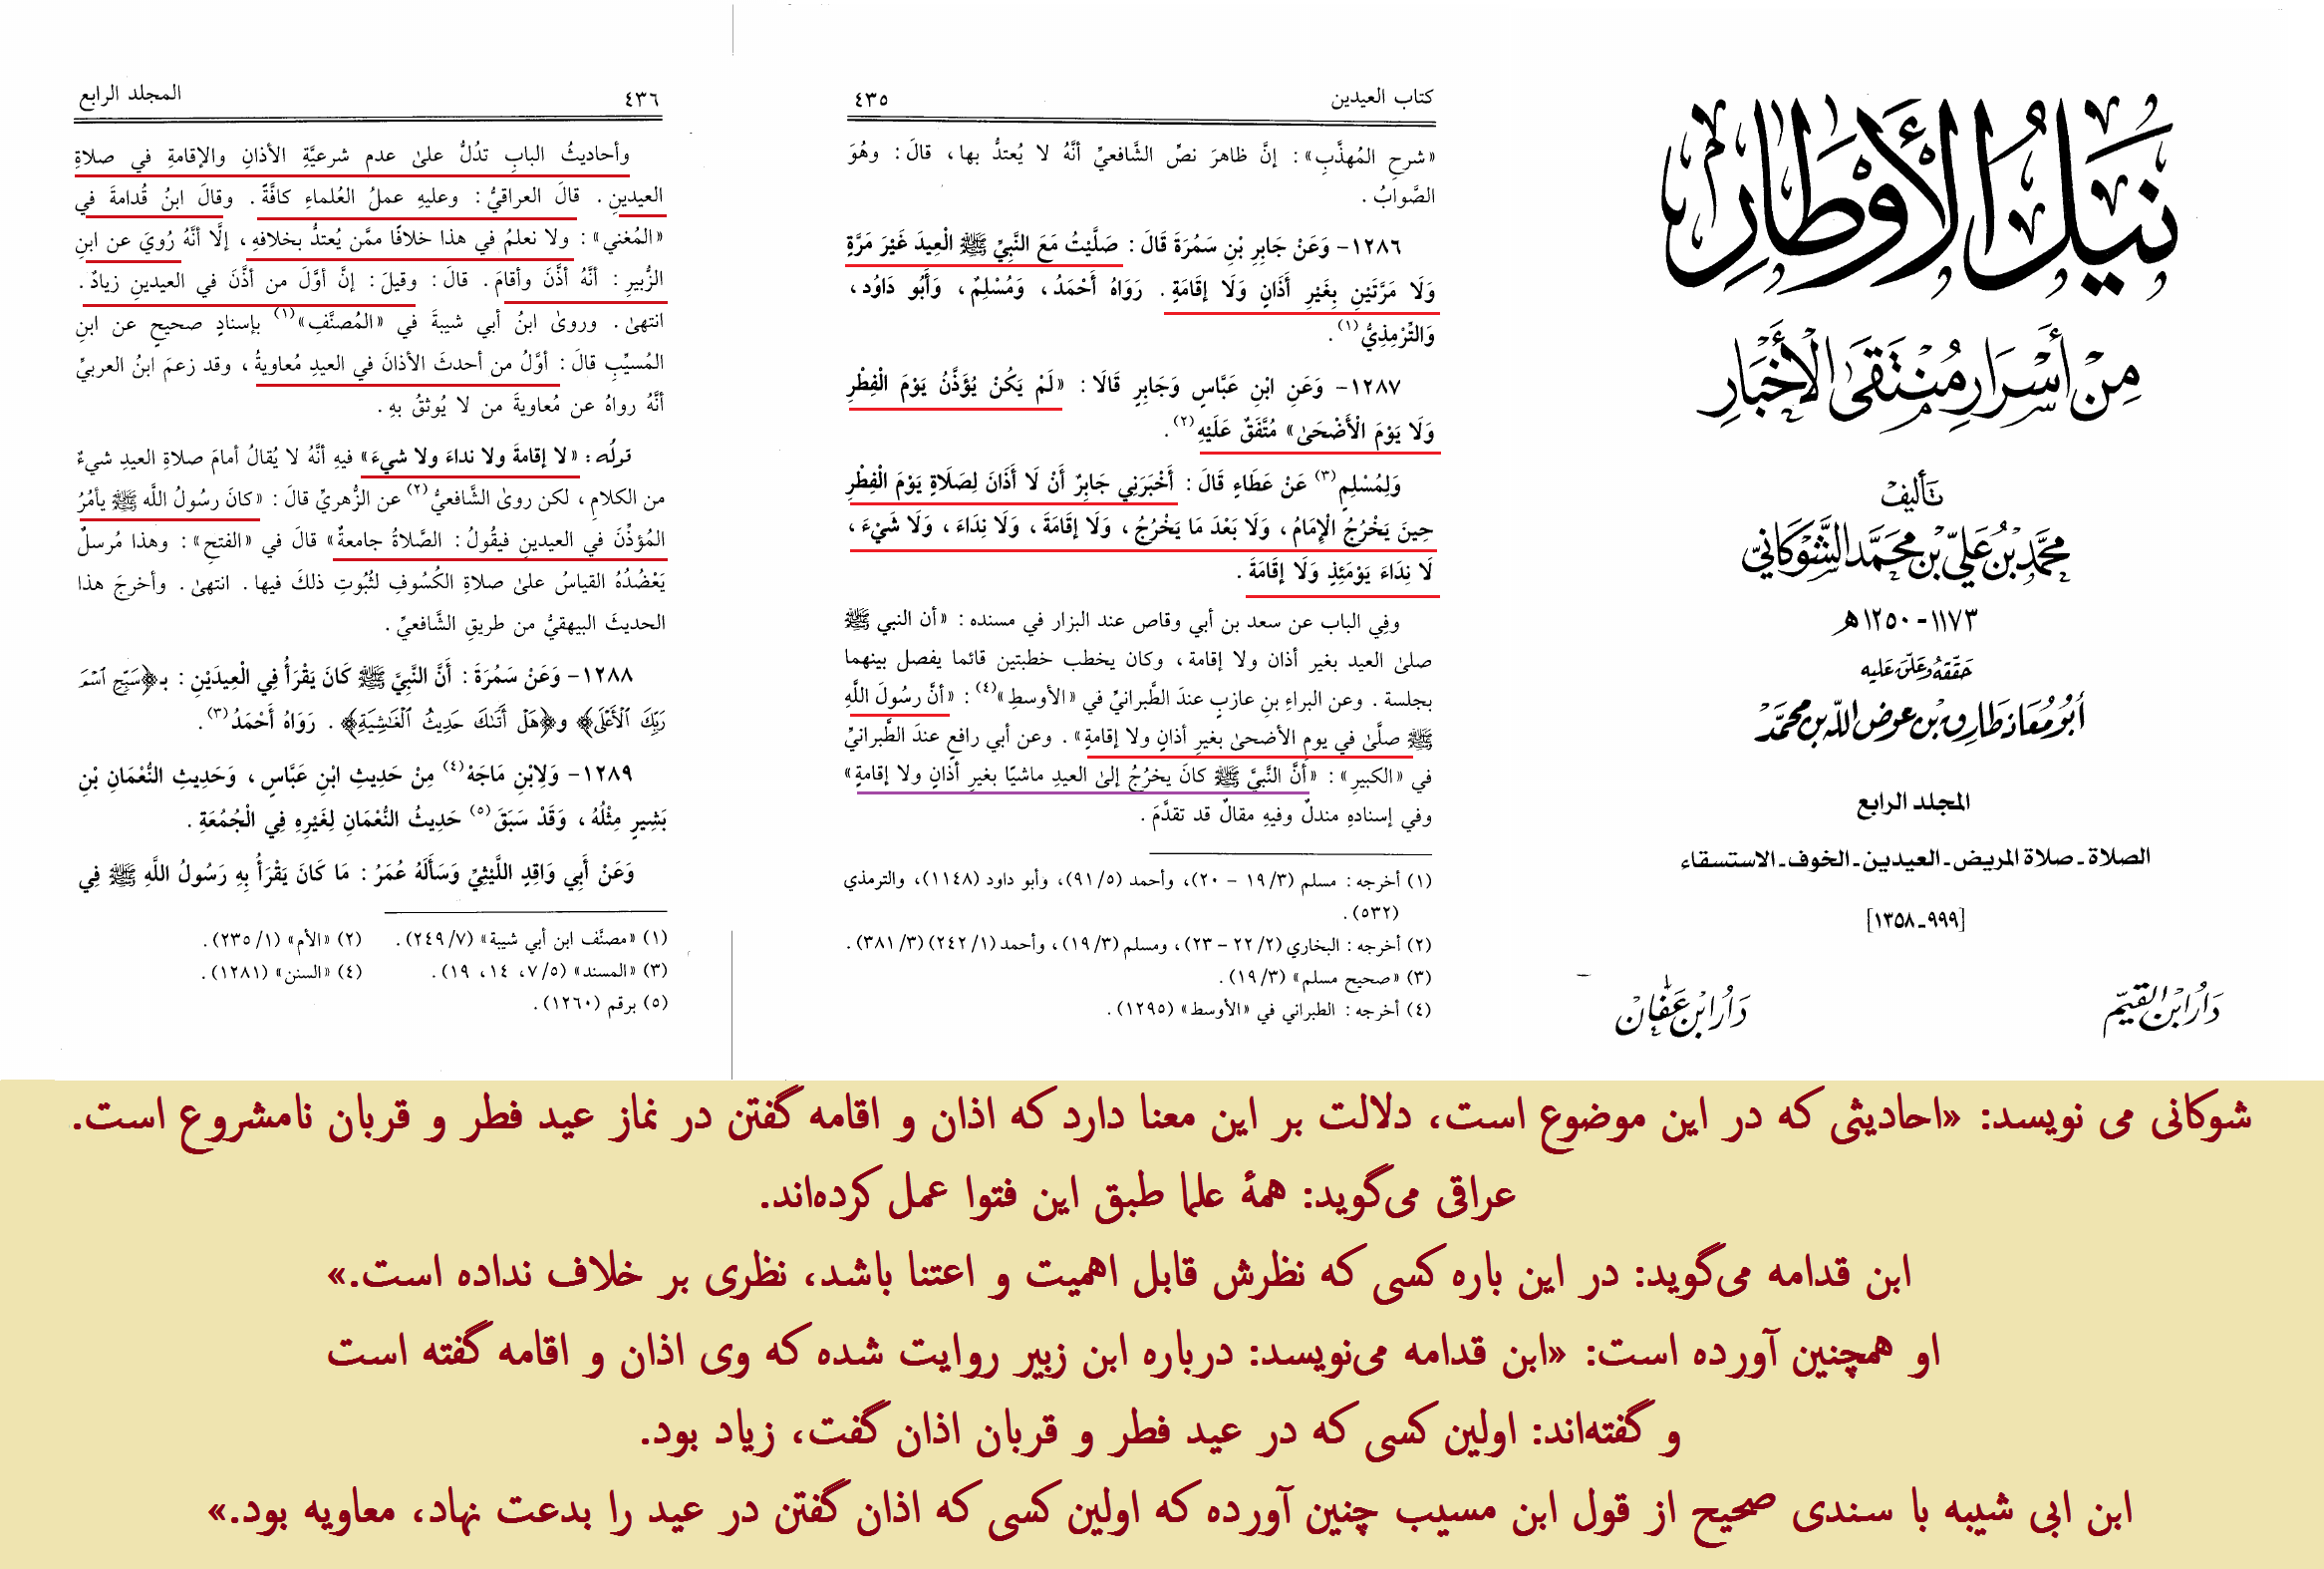 نَيْلُ الأَوْطَارِ
مِنْ أَسْرَارِ مُنْتَقَى الأَخْبَارِ
تأليف
محمّد بن عليّ بن محمّد الشّوكانيّ
١١٧٣ - ١٢٥٠ هـ
حقّقه وعلّق عليه
أبو معاذ طارق بن عوض اللّه بن محمّد
المجلد الرابع
الصلاة ـ صلاة المريض ـ العيدين ـ الخوف ـ الاستسقاء
[٩٩٩ـ١٣٥٨]
دار ابن القيّم
دار ابن عفان
كتاب العيدين
٤٣٥
«شرحِ المُهذَّبِ»: إنَّ ظاهرَ نصِّ الشَّافعيِّ أنَّهُ لا يُعتدُّ بها، قالَ: وهُوَ
الصَّوابُ.
١٢٨٦- وَعَنْ جَابِرِ بْنِ سَمُرَةَ قَالَ: صَلَّيْتُ مَعَ النَّبِيِّ ﷺ الْعِيدَ غَيْرَ مَرَّةٍ
وَلَا مَرَّتَيْنِ بِغَيْرِ أَذَانٍ وَلَا إِقَامَةٍ. رَوَاهُ أَحْمَدُ، وَمُسْلِمٌ، وَأَبُو دَاوُد،
وَالتِّرْمِذِيُّ(١).
١٢٨٧- وَعَنِ ابْنِ عَبَّاسٍ وَجَابِرٍ قَالَا: «لَمْ يَكُنْ يُؤَذَّنُ يَوْمَ الْفِطْرِ
وَلَا يَوْمَ الْأَضْحَىٰ» مُتَّفَقٌ عَلَيْهِ(٢).
وَلِمُسْلِمٍ(٣) عَنْ عَطَاءٍ قَالَ: أَخْبَرَنِي جَابِرٌ أَنْ لَا أَذَانَ لِصَلَاةِ يَوْمَ الْفِطْرِ
حِينَ يَخْرُجُ الْإِمَامُ، وَلَا بَعْدَ مَا يَخْرُجُ، وَلَا إِقَامَةَ، وَلَا نِدَاءَ، وَلَا شَيْءَ،
لَا نِدَاءَ يَوْمَئِذٍ وَلَا إِقَامَةَ.
وفِي الباب عن سعد بن أبي وقاص عند البزار في مسنده: «أن النبي ﷺ
صلىٰ العيد بغير أذان ولا إقامة، وكان يخطب خطبتين قائما يفصل بينهما
بجلسة. وعن البراءِ بنِ عازبٍ عندَ الطَّبرانيِّ في «الأوسطِ»(٤): «أنَّ رسُولَ اللَّهِ
ﷺ صلَّىٰ في يومِ الأضحىٰ بغيرِ أذانٍ ولا إقامةٍ». وعن أبي رافعٍ عندَ الطَّبرانيِّ
في «الكبيرِ»: «أنَّ النَّبيَّ ﷺ كانَ يخرُجُ إلىٰ العيدِ ماشيًا بغيرِ أذانٍ ولا إقامةٍ»
وفي إسنادهِ مندلٌ وفيهِ مقالٌ قد تقدَّمَ.
(١) أخرجه: مسلم (٣/ ١٩ – ٢٠)، وأحمد (٥/ ٩١)، وأبو داود (١١٤٨)، والترمذي
(٥٣٢).
(٢) أخرجه: البخاري (٢/ ٢٢ – ٢٣)، ومسلم (٣/ ١٩)، وأحمد (١/ ٢٤٢) (٣/ ٣٨١).
(٣) «صحيح مسلم» (٣/ ١٩).
(٤) أخرجه: الطبراني في «الأوسط» (١٢٩٥).
٤٣٦
المجلد الرابع
وأحاديثُ البابِ تدُلُّ علىٰ عدم شرعيَّةِ الأذانِ والإقامةِ في صلاةِ
العيدينِ. قالَ العراقيُّ: وعليهِ عملُ العُلماءِ كافَّةً. وقالَ ابنُ قُدامةَ في
«المُغني»: ولا نعلمُ في هذا خلافًا ممَّن يُعتدُّ بخلافهِ، إلَّا أنَّهُ رُويَ عن ابنِ
الزُّبيرِ: أنَّهُ أذَّنَ وأقامَ. قالَ: وقيلَ: إنَّ أوَّلَ من أذَّنَ في العيدينِ زيادٌ.
انتهىٰ. وروىٰ ابنُ أبي شيبةَ في «المُصنَّفِ»(١) بإسنادٍ صحيحٍ عن ابنِ
المُسيِّبِ قالَ: أوَّلُ من أحدثَ الأذانَ في العيدِ مُعاويةُ، وقد زعمَ ابنُ العربيِّ
أنَّهُ رواهُ عن مُعاويةَ من لا يُوثقُ بهِ.
قولُه: «لا إقامةَ ولا نداءَ ولا شيءَ» فيهِ أنَّهُ لا يُقالُ أمامَ صلاةِ العيدِ شيءٌ
من الكلامِ، لكن روىٰ الشَّافعيُّ(٢) عن الزُّهريِّ قالَ: «كانَ رسُولُ اللَّه ﷺ يأمُرُ
المُؤذِّنَ في العيدينِ فيقُولُ: الصَّلاةُ جامعةٌ» قالَ في «الفتحِ»: وهذا مُرسلٌ
يَعْضُدُهُ القياسُ علىٰ صلاةِ الكُسُوفِ لثُبُوتِ ذلكَ فيها. انتهىٰ. وأخرجَ هذا
الحديثَ البيهقيُّ من طريقِ الشَّافعيِّ.
١٢٨٨- وَعَنْ سَمُرَةَ: أَنَّ النَّبِيَّ ﷺ كَانَ يَقْرَأُ فِي الْعِيدَيْنِ: بـ﴿سَبِّحِ ٱسْمَ
رَبِّكَ ٱلْأَعْلَى﴾ و﴿هَلْ أَتَىٰكَ حَدِيثُ ٱلْغَـٰشِيَةِ﴾. رَوَاهُ أَحْمَدُ(٣).
١٢٨٩- وَلِابْنِ مَاجَهْ(٤) مِنْ حَدِيثِ ابْنِ عَبَّاسٍ، وَحَدِيثِ النُّعْمَانِ بْنِ
بَشِيرٍ مِثْلُهُ، وَقَدْ سَبَقَ(٥) حَدِيثُ النُّعْمَانِ لِغَيْرِهِ فِي الْجُمُعَةِ.
وَعَنْ أَبِي وَاقِدٍ اللَّيْثِيِّ وَسَأَلَهُ عُمَرُ: مَا كَانَ يَقْرَأُ بِهِ رَسُولُ اللَّهِ ﷺ فِي
(١) «مصنَّف ابن أبي شيبة» (٧/ ٢٤٩). (٢) «الأم» (١/ ٢٣٥).
(٣) «المسند» (٥/ ٧، ١٤، ١٩). (٤) «السنن» (١٢٨١).
(٥) برقم (١٢٦٠).
شوکانی می نویسد: «احادیثی که در این موضوع است، دلالت بر این معنا دارد که اذان و اقامه گفتن در نماز عید فطر و قربان نامشروع است.
عراقی می‌گوید: همهٔ علما طبق این فتوا عمل کرده‌اند.
ابن قدامه می‌گوید: در این باره کسی که نظرش قابل اهمیت و اعتنا باشد، نظری بر خلاف نداده است.»
او همچنین آورده است: «ابن قدامه می‌نویسد: درباره ابن زبیر روایت شده که وی اذان و اقامه گفته است
و گفته‌اند: اولین کسی که در عید فطر و قربان اذان گفت، زیاد بود.
ابن ابی شیبه با سندی صحیح از قول ابن مسیب چنین آورده که اولین کسی که اذان گفتن در عید را بدعت نهاد، معاویه بود.»